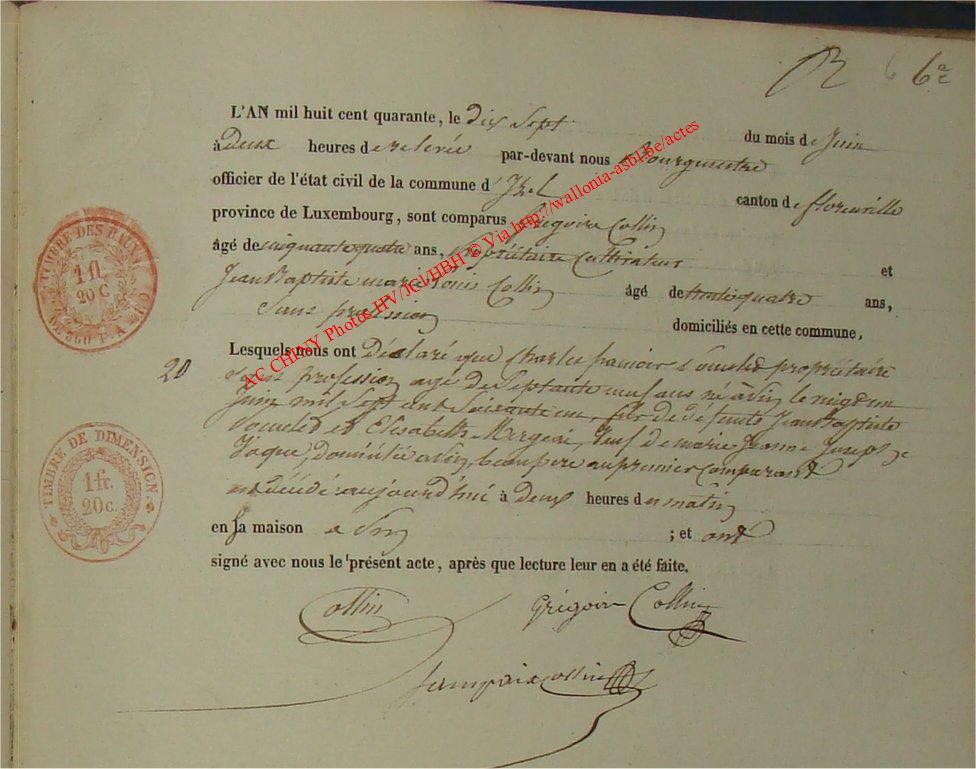 6e
L'AN mil huit cent quarante, le dix sept du mois de Juin
à Deux heures de relevée par-devant nous Bourguestre
officier de l'état civil de la commune d'Izel canton de florenville
province de Luxembourg, sont comparus Grégoire Collin
âgé de cinquante quatre ans, Propriétaire Cultivateur et
Jean Baptiste marie Louis Collin âgé de trente quatre ans,
Sans profession domiciliés en cette commune,
Lesquels nous ont Déclaré que Charles françois propriétaire
20
Sans profession agé de Septante neuf ans né à le vingt un
Juin mil Sept cent Soixante un, fils de défunts Jean Baptiste
et Elisabeth veuf de marie Jeanne Joseph
Jaque, Domicilié beaupère au premier Comparant
est décédé aujourd'hui à Deux heures du matin
en la maison a ; et ont
signé avec nous le présent acte, après que lecture leur en a été faite.
Collin
Grégoire Collin
Collin
TIMBRE DES
1 fl.
20 C
TIMBRE DE DIMENSION.
1 fr.
20 c.
AC CHINY Photos HV/JCl/HBH © Via http://wallonia-asbl.be/actes